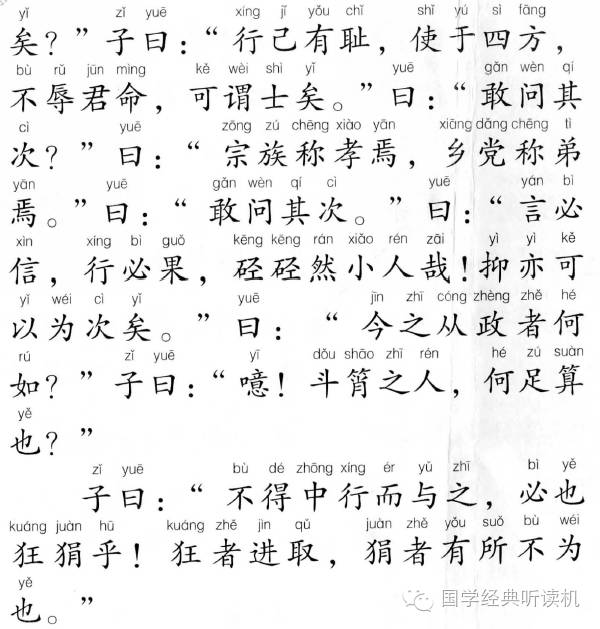 yǐ zǐ yuē xíng jǐ yǒu chǐ shǐ yú sì fāng
矣？”子曰：“行己有耻，使于四方，
bù rǔ jūn mìng kě wèi shì yǐ yuē gǎn wèn qí
不辱君命，可谓士矣。”曰：“敢问其
cì yuē zōng zú chēng xiào yān xiāng dǎng chēng tì
次？”曰：“宗族称孝焉，乡党称弟
yān yuē gǎn wèn qí cì yuē yán bì
焉。”曰：“敢问其次。”曰：“言必
xìn xíng bì guǒ kēng kēng rán xiǎo rén zāi yì yì kě
信，行必果，硁硁然小人哉！抑亦可
yǐ wéi cì yǐ yuē jīn zhī cóng zhèng zhě hé
以为次矣。”曰：“今之从政者何
rú zǐ yuē yī dǒu shāo zhī rén hé zú suàn
如？”子曰：“噫！斗筲之人，何足算
yě
也？”
zǐ yuē bù dé zhōng xíng ér yǔ zhī bì yě
子曰：“不得中行而与之，必也
kuáng juàn hū kuáng zhě jìn qǔ juàn zhě yǒu suǒ bù wéi
狂狷乎！狂者进取，狷者有所不为
yě
也。”
国学经典听读机